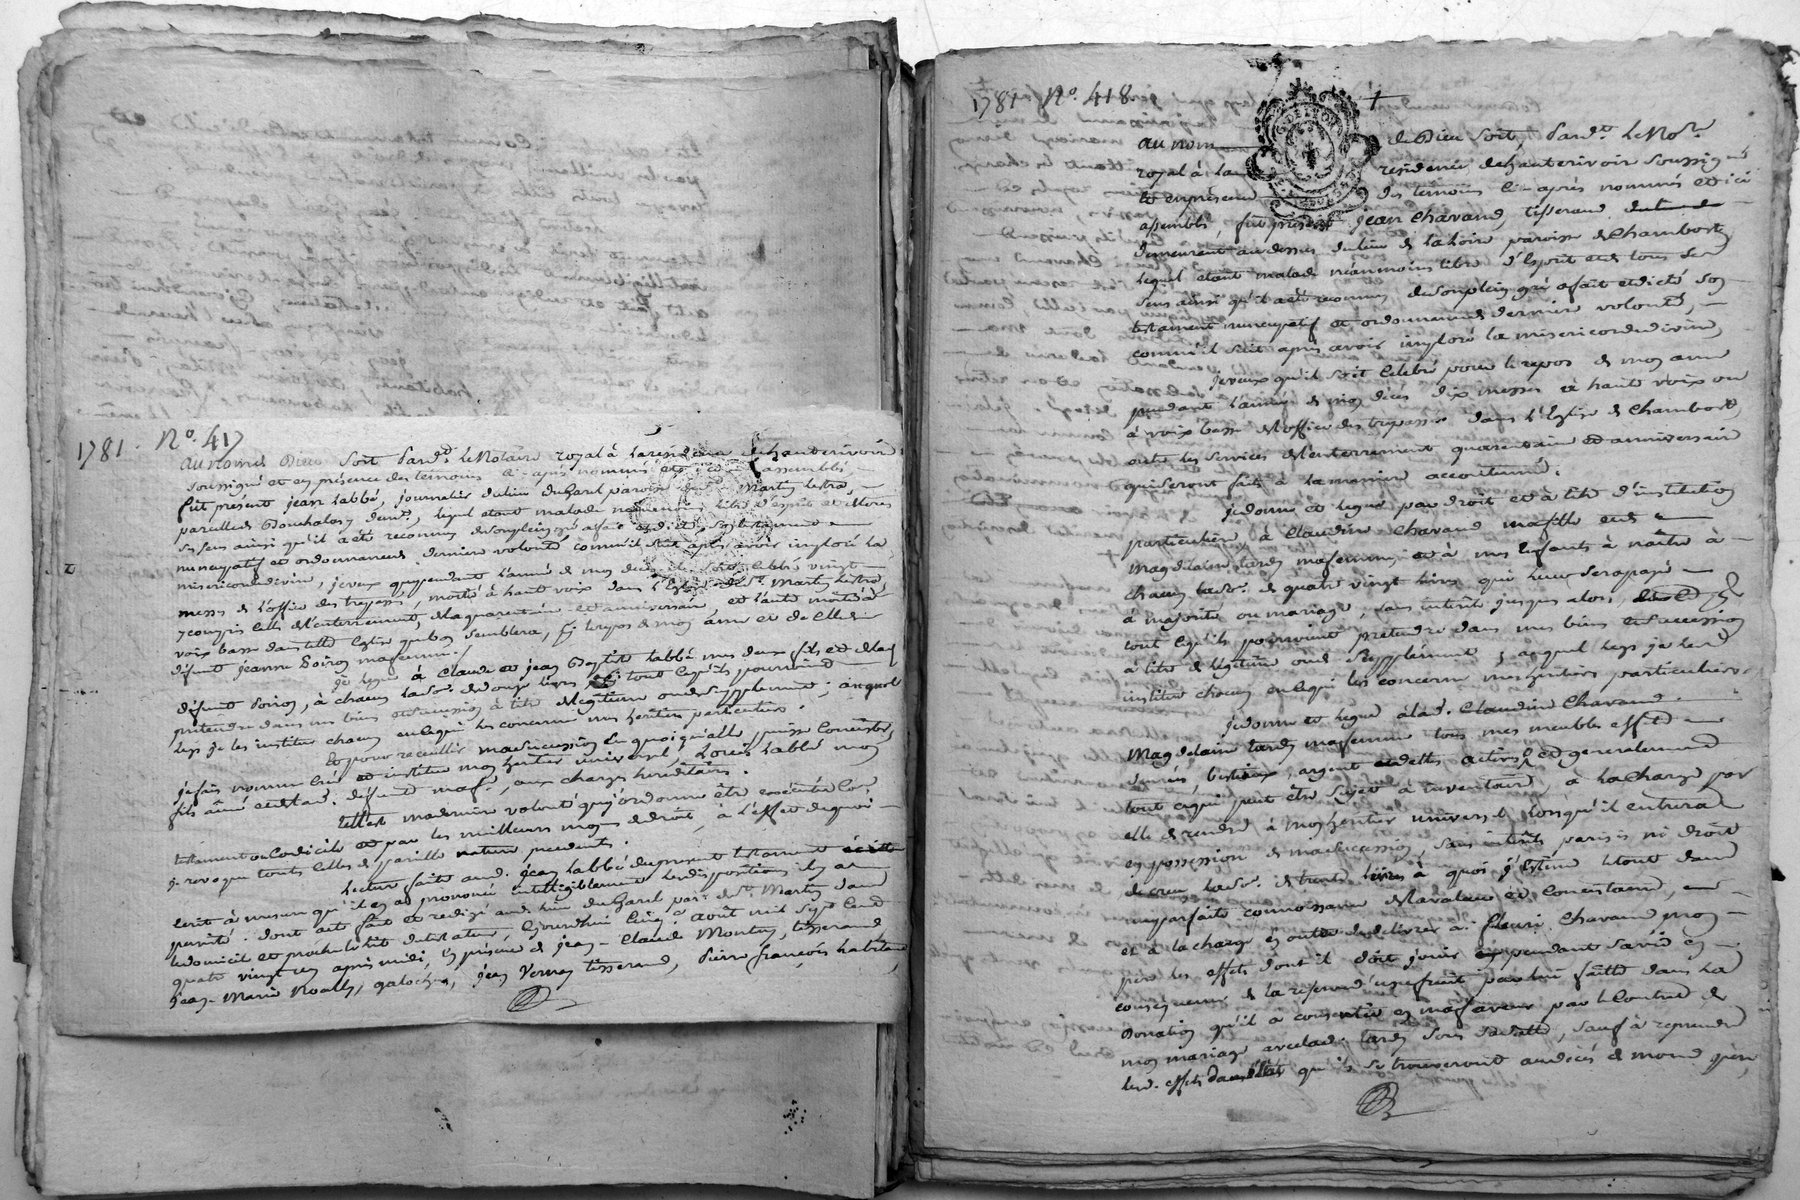 1781. No. 417
au nom de Dieu soit. Pard.t le Notaire royal à la residence de hauterivoir
soussigné et en presence des temoins ci-après nommés et ici assemblés
fut présent jean Labbé, journalier du lieu du paroisse de S.t Martin Lestra,
lequel etant malade neanmoins libre d'esprit et de tous
ses sens ainsi qu'il a eté reconnu de son plein gré a fait et dicté son testament
nuncupatif et ordonnance de derniere volonté comm'il suit après avoir imploré la
misericorde divine, je veux que pendant l'année de mon decès il soit celebré vingt
messes de l'office des trepassés, moitié à haute voix dans l'Eglise de S.t Martin Lestra,
y compris celles de l'enterrement, de la quarantaine et anniversaire, et l'autre moitié à
voix basse dans telle Eglise que bon semblera, pour le repos de mon ame et de celle de
défunte jeanne Poiron ma femme.
je legue à Claude et jean Baptiste Labbé mes deux fils et de lad.
défunte Poiron, à chacun la so. de livres et tout ce qu'ils pourroient
pretendre dans mes biens et succession à titre de legitime ou de supplement; auquel
legs je les institue chacun en ce qui les concerne mes heritiers particuliers.
Et pour recueillir ma succession en quoi qu'elle puisse consister,
je fais nomme crée et institue mon heritier universel Louis Labbé mon
fils ainé et de lad. défunte ma f. aux charges hereditaires.
telle est ma derniere volonté que j'ordonne être executée par
testament ou Codicile et par les meilleurs moyens de droit, à l'effet de quoi
je revoque toutes celles de pareille nature precedentes.
Lecture faite aud. jean Labbé du present testament
ecrit à mesure qu'il en a prononcé intelligiblement les dispositions il y a
persisté. dont acte fait et redigé aud. lieu du par. de S.t Martin dans
le domicil et proche le lit du testateur, Ce jourd'hui cinq aoüt mil sept cent
quatre vingt un après midi, En présence de jean-Claude tisserand
jean-Marie galocher, jean tisserand, Pierre françois habitans
1781. No. 418.
G. DE LYON
au nom de Dieu soit, Pard.t le No.re
royal à la residence de hauterivoir soussigné
et en presence des temoins ci-après nommés et ici
assemblés, fut présent jean Chavand, tisserand
demeurant au dessus du lieu de la Loire paroisse de Chambost
lequel etant malade neanmoins libre d'Esprit et de tous ses
sens ainsi qu'il a eté reconnu de son plein gré a fait et dicté son
testament nuncupatif et ordonnance de derniere volonté,
comm'il suit après avoir imploré la misericorde divine,
je veux qu'il soit celebré pour le repos de mon ame
pendant l'année de mon decès dix messes à haute voix ou
à voix basse de l'office des trepassés dans l'Eglise de Chambost,
outre les services d'Enterrement quarantaine et anniversaire
qui seront faits à la maniere accoutumée.
je donne et legue par droit et à titre d'institution
particuliere à Claudine Chavand ma fille et de
Magdelaine tardy ma femme, et à mes Enfants à naitre à
chacun la so. de quatre vingt livres qui leur sera payé
à majorité ou mariage, sans interêt jusques alors
tout ce qu'ils pourroient pretendre dans mes biens et succession
à titre de legitime ou de supplément; auquel legs je les
institue chacun en ce qui les concerne mes heritiers particuliers.
je donne et legue à lad. Claudine Chavand
Magdelaine tardy ma femme tous mes meubles effets
denrées bestiaux, argent et dettes actives, et generalement
tout ce qui peut être sujet à inventaire, à la charge par
elle de rendre à mon heritier universel lorsqu'il entrera
en possession de ma succession, sans interêts parisis ni droit
de creu la so. de trente livres à quoi j'Estime le tout dans
ma parfaite connoissance de la valeur et consistance,
et à la charge en outre de delivrer à fleuri Chavand mon
pere les effets dont il doit jouir pendant sa vie en
consequence de la reserve d'usufruit par lui faitte dans la
Donation qu'il a consentie en ma faveur par le Contrat de
mon mariage avec lad. tardy sous sa datte, sauf à reprendre
lesd. effets dans l'état qu'ils se trouveront au decès de mond. père,